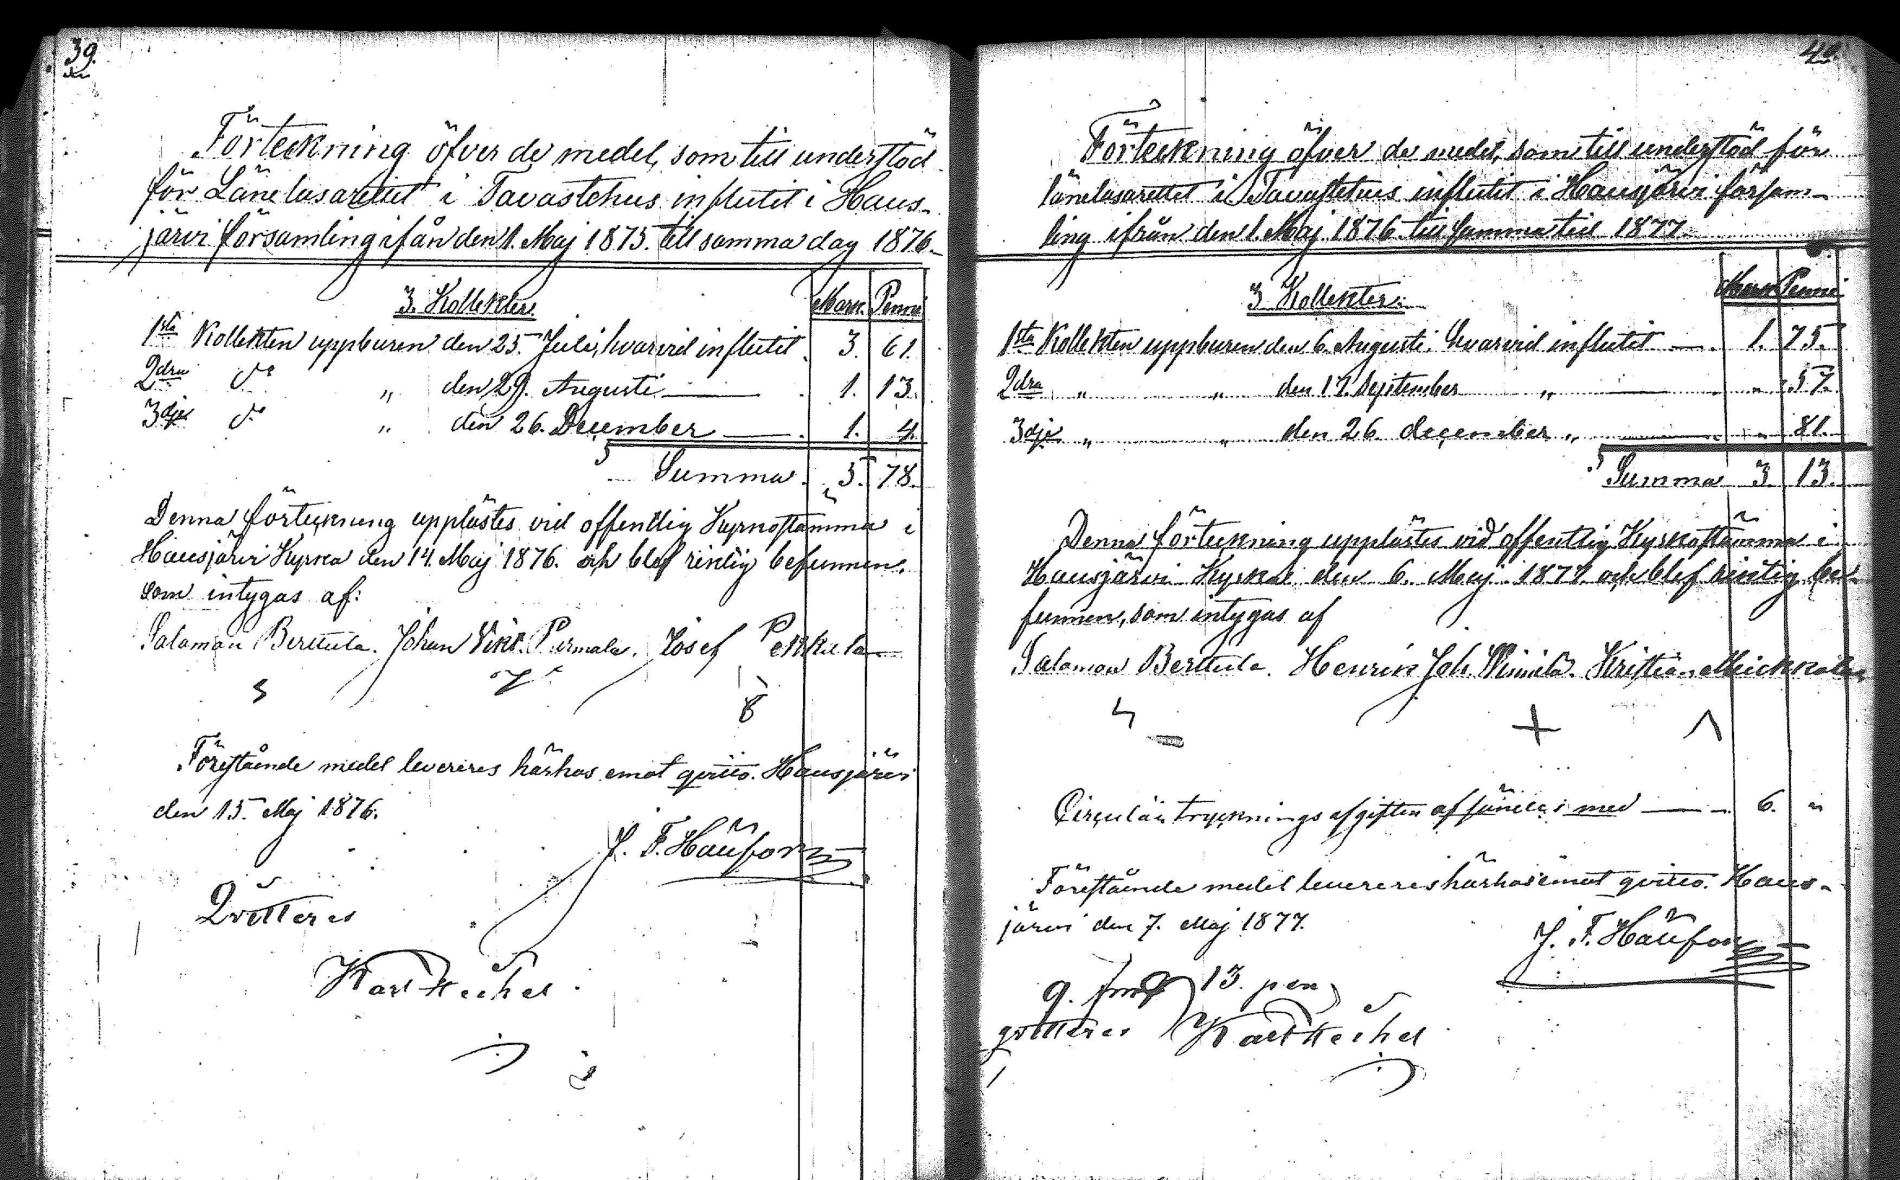 39.
Förteckning öfver de medel, som till understöd
för Länelasarettet i Tavastehus influtit i Haus-
järvi församling ifrån den 1. Maj 1875. till samma dag 1876.
3. Kollekter. Mark. Penni
1sta Kollekten uppburen den 25. Juli, hvarvid influtit 3. 61.
2dra d:o „ den 29. Augusti 1. 13.
3dje d:o „ den 26. December 1. 4.
Summa 5. 78.
Denna förteckning upplästes vid offentlig Kyrkostämma i
Hausjärvi Kyrka den 14. Maj 1876. och blef riktig befunnen,
som intygas af:
Salomon Berttula. Johan Vikt. Purmala. Josef Pekkula
Förestående medel levereres härhos emot qvitto. Hausjärvi
den 15. Maj 1876.
J. F. Häufors
Qvitteres
Karl Kechel
40.
Förteckning öfver de medel, som till understöd för
länelasarettet i Tavastehus influtit i Hausjärvi försam-
ling ifrån den 1. Maj 1876 till samma tid 1877.
3 Kollekter. Mark Penni
1sta Kollekten uppburen den 6. Augusti. hvarvid influtit 1. 75.
2dra „ „ den 17. September „ „ 57.
3dje „ „ den 26. december „ „ 81.
Summa 3. 13.
Denna förteckning upplästes vid offentlig Kyrkostämma i
Hausjärvi Kyrka den 6. Maj 1877. och blef riktig be-
funnen, som intygas af
Salomon Berttula. Henrik Joh. Kristian
Circulär tryckningsafgiften afsändes med 6. „
Förestående medel levereres härhos emot qvitto. Haus-
järvi den 7. Maj 1877.
J. F. Häufors
9. fmk 13. pen
qvitteres Karl Kechel